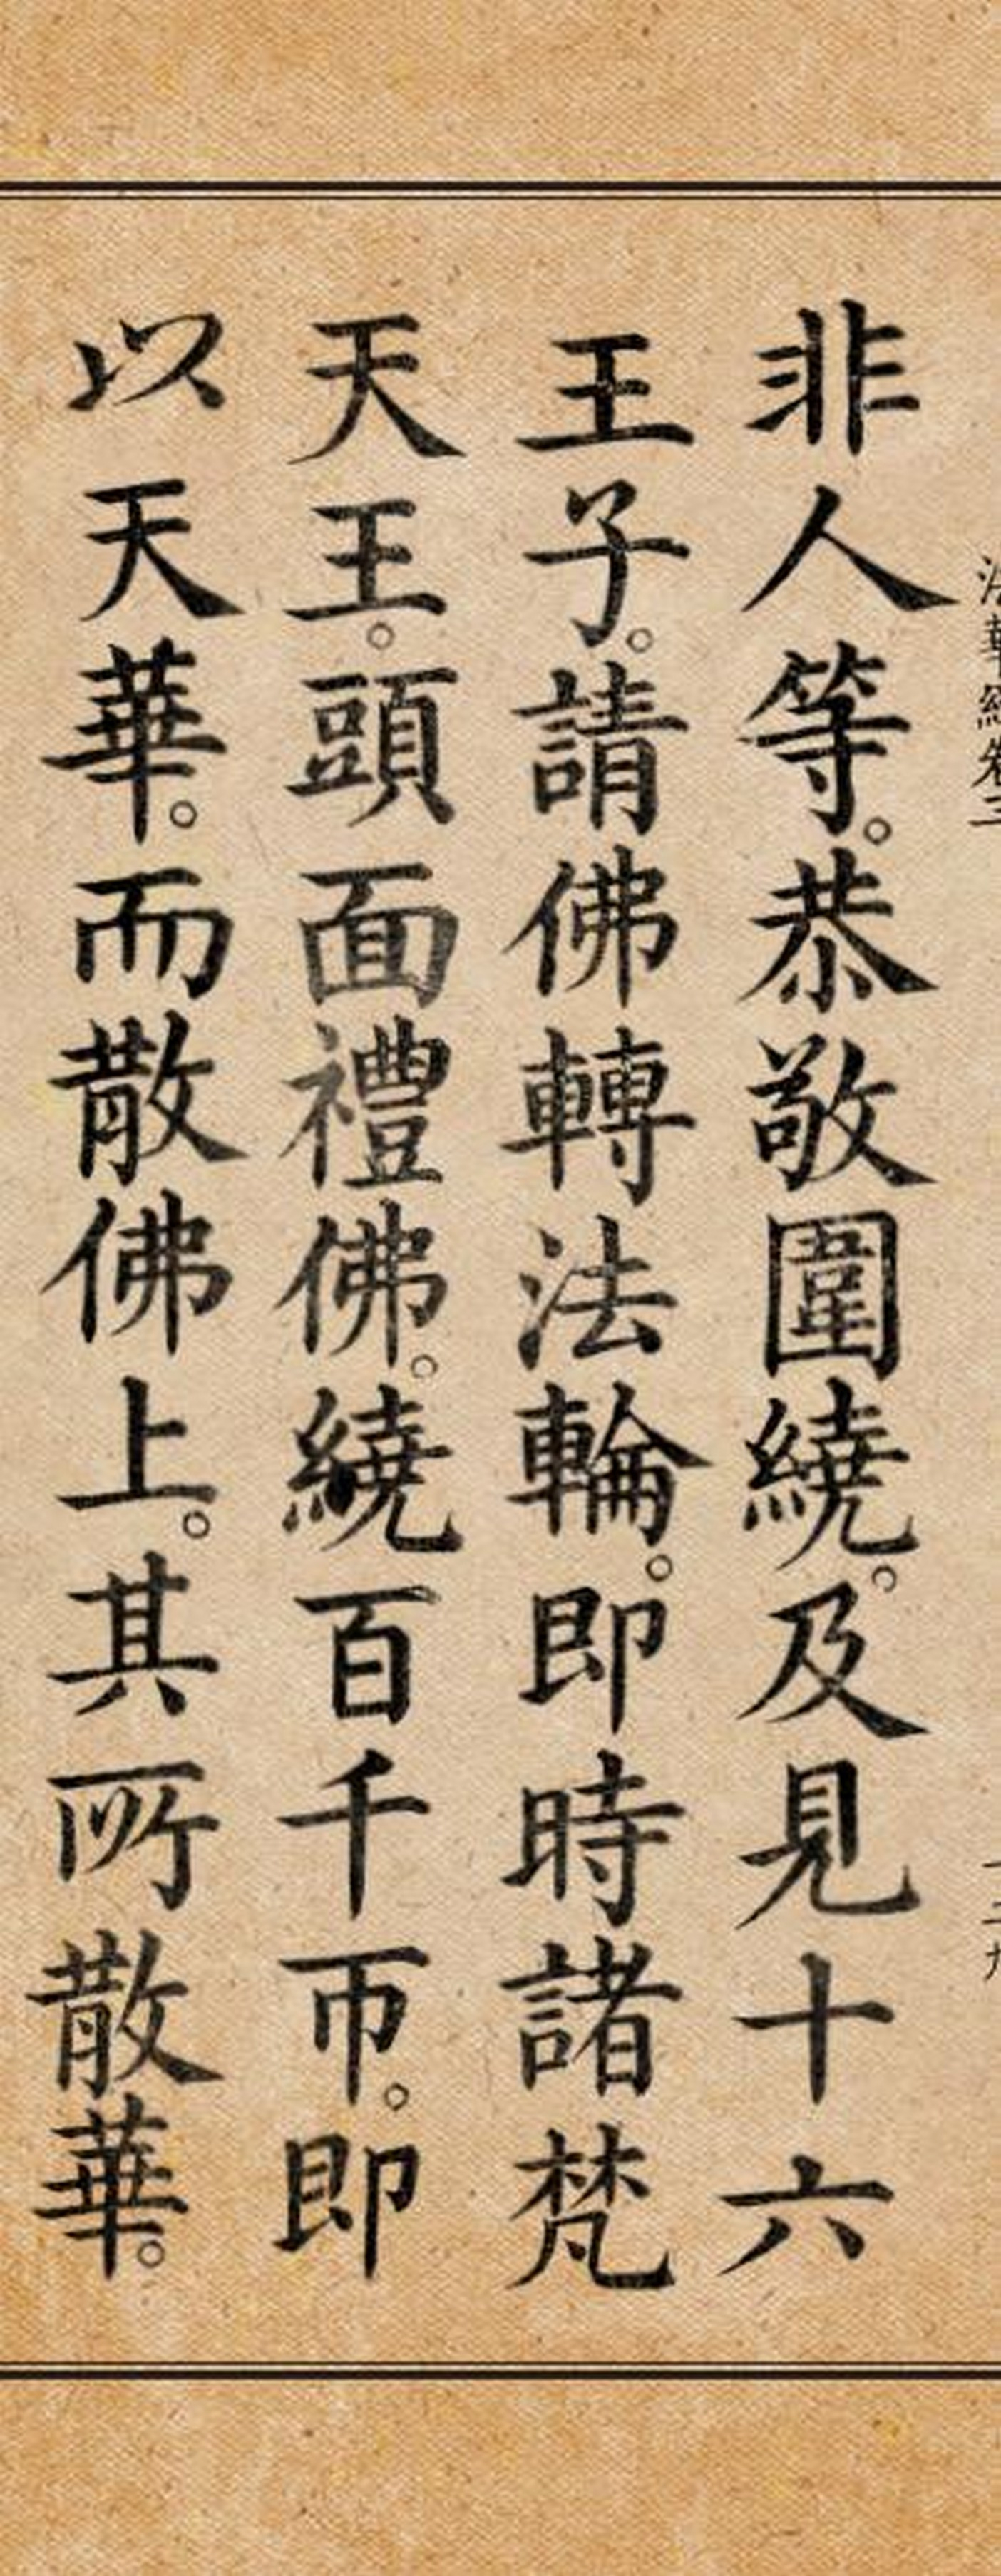 法華經卷三
非人等。恭敬圍繞。及見十六
王子。請佛轉法輪。即時諸梵
天王。頭面禮佛。繞百千帀。即
以天華。而散佛上。其所散華。